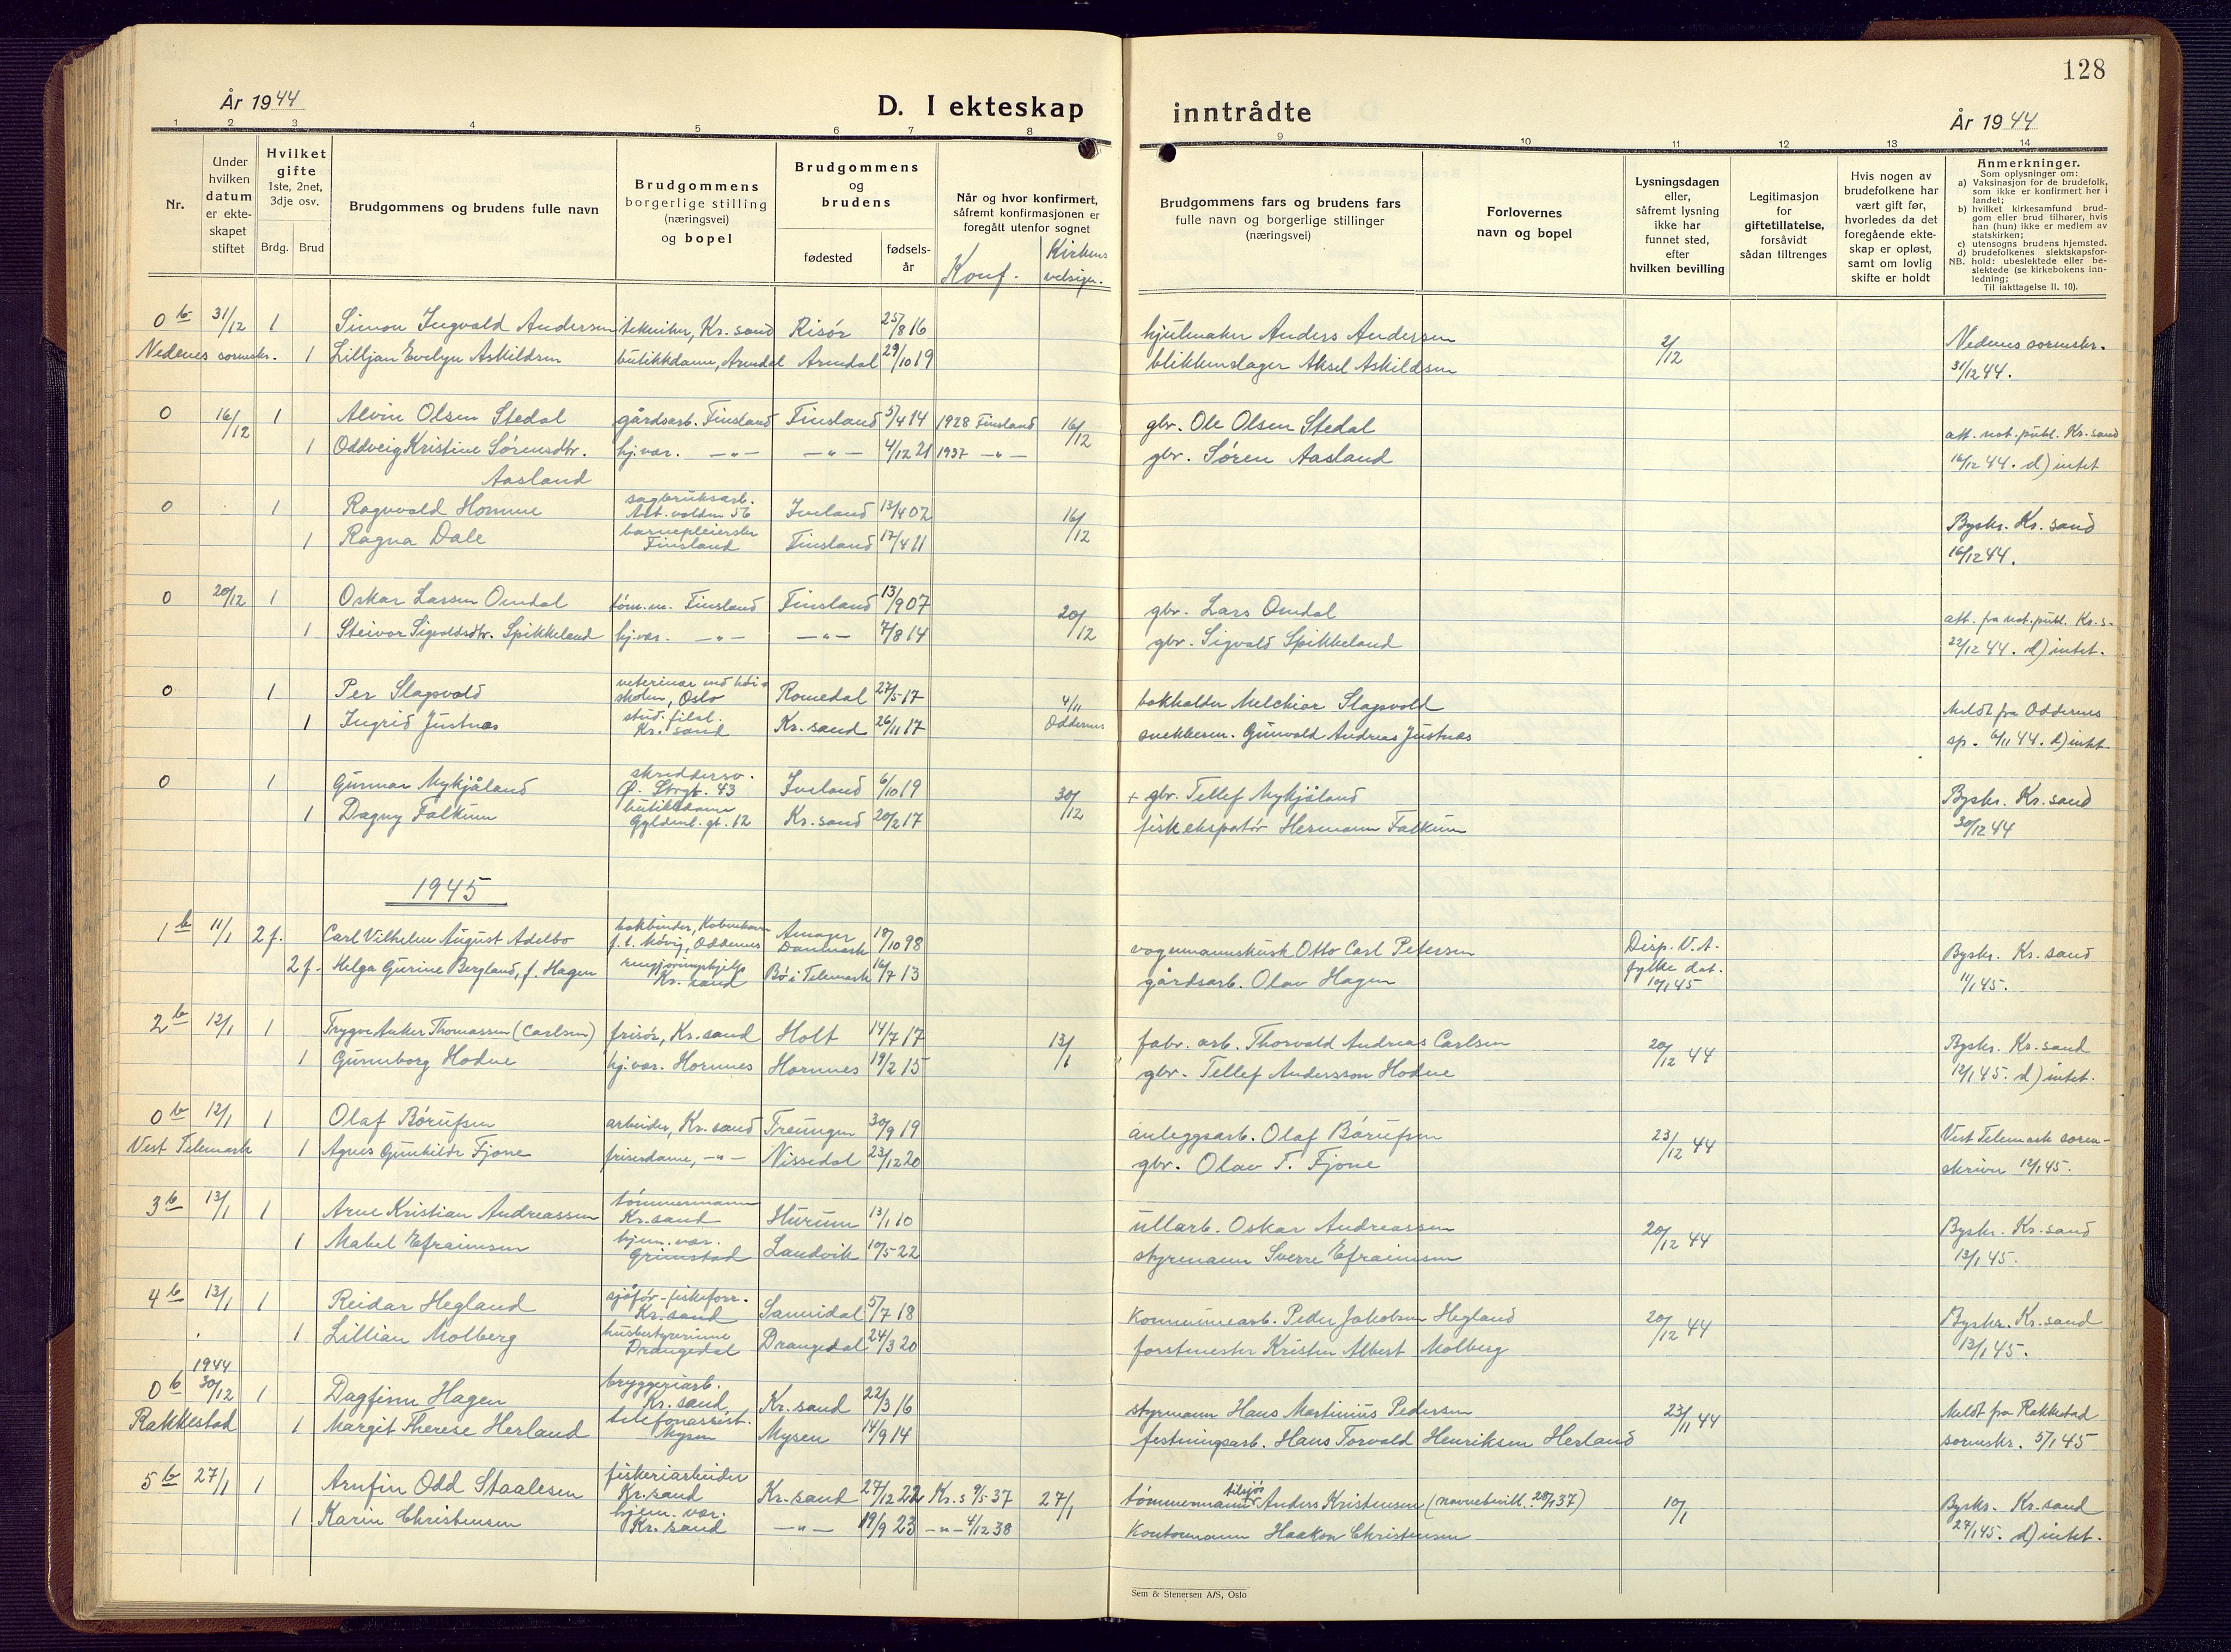 128
År 1944
D. I ekteskap inntrådte
År 1944
1 2 3 4 5 6 7 8 9 10 11 12 13 14
Nr.
Under hvilken datum er ekteskapet stiftet
Hvilket gifte 1ste, 2net, 3dje osv.
Brdg. Brud
Brudgommens og brudens fulle navn
Brudgommens borgerlige stilling (næringsvei) og bopel
Brudgommens og brudens
fødested fødselsår
Når og hvor konfirmert, såfremt konfirmasjonen er foregått utenfor sognet
Konf. Kirkens velsign.
Brudgommens fars og brudens fars fulle navn og borgerlige stillinger (næringsvei)
Forlovernes navn og bopel
Lysningsdagen eller, såfremt lysning ikke har funnet sted, efter hvilken bevilling
Legitimasjon for giftetillatelse, forsåvidt sådan tiltrenges
Hvis nogen av brudefolkene har vært gift før, hvorledes da det foregående ekteskap er opløst, samt om lovlig skifte er holdt
Anmerkninger.
Som oplysninger om:
a) Vaksinasjon for de brudefolk, som ikke er konfirmert her i landet;
b) hvilket kirkesamfund brudgom eller brud tilhører, hvis han (hun) ikke er medlem av statskirken;
c) utensogns brudens hjemsted.
d) brudefolkenes slektskapsforhold: ubeslektede eller beslektede (se kirkebokens innledning;
NB.
Til iakttagelse II. 10).
0 b 31/12 1 Simon Ingvald Andersen tekniker, Kr. sand Risör 25/8 16 hjulmaker Anders Andersen 2/12 Nedenes sorenskr.
Nedenes sorenskr. 1 Lilljan Evelyn Askildsen butikkdame, Arendal Arendal 29/10 19 blikkenslager Aksel Askildsen 31/12 44.
0 16/12 1 Alvin Olsen Stedal gårdsarb. Finsland Finsland 5/4 14 1928 Finsland 16/12 gbr. Ole Olsen Stedal att. not. publ. Kr. sand
1 Oddveig Kristine Sörensdtr. hj.var. —"— —"— 4/12 21 1937 —"— gbr. Sören Aasland 16/12 44. d) intet
Aasland
0 1 Ragnvald Homme sagbruksarb. Iveland 13/4 02 16/12 Byskr. Kr. sand
1 Ragna Dale barnepleierske Finsland Finsland 17/4 11 16/12 44.
0 20/12 1 Oskar Larsen Omdal töm.m. Finsland Finsland 13/9 07 20/12 gbr. Lars Omdal att. fra not. publ. Kr. s.
1 Steivor Sigvaldsdtr. Spikkeland hj.var. —"— —"— 7/8 14 gbr. Sigvald Spikkeland 22/12 44. d) intet.
0 1 Per Slagsvold veterinær ved höiskolen, Oslo Romedal 27/5 17 4/11 bokholder Melchior Slagsvold Meldt fra Oddernes
1 Ingrid Justnæs stud. filol. Kr. sand Kr. sand 26/11 17 Oddernes snekkerm. Gunvald Andreas Justnæs sp. 6/11 44. d) intet
0 1 Gunnar Mykjåland skreddersv. Ö. Strgt. 43 Iveland 6/10 19 30/12 + gbr. Tellef Mykjåland Byskr. Kr. sand
1 Dagny Falkum butikkdame Gyldenl. gt. 12 Kr. sand 20/2 17 fiskekspatör Hermann Falkum 30/12 44
1945
1 b 11/1 2 f. Carl Vilhelm August Adelbo bokbinder, Köbenhavn f. t. Móvig, Oddernes Amager Danmark 18/10 98 vognmannskusk Otto Carl Petersen Disp. V.A. fylke dat. 10/1 45 Byskr. Kr. sand
2 f. Helga Gurine Bergland, f. Hagen rengjöringshjelp Kr. sand Bö i Telemark 16/7 13 gårdsarb. Olav Hagen 11/1 45.
2 b 12/1 1 Trygve Anker Thomassen (Carlsen) frisör, Kr. sand Holt 14/7 17 13/1 fabr. arb. Thorvald Andreas Carlsen 20/12 44 Byskr. Kr. sand
1 Gunnborg Hodne hj.var. Hornnes Hornnes 19/2 15 gbr. Tellef Andersson Hodne 12/1 45. d) intet.
0 b 12/1 1 Olaf Börufsen arbeider, Kr. sand Treungen 30/9 19 anleggsarb. Olaf Börufsen 23/12 44 Vest Telemark soren-
Vest Telemark 1 Agnes Gunhilde Fjone friserdame, —"— Nissedal 23/12 20 gbr. Olav T. Fjone skriver 12/1 45.
3 b 13/1 1 Arne Kristian Andreassen tömmermann Kr. sand Hurum 13/1 10 ullarb. Oskar Andreassen 20/12 44 Byskr. Kr. sand
1 Mabel Efraimsen hjem. var. Grimstad Landvik 10/5 22 styrmann Sverre Efraimsen 13/1 45.
4 b 13/1 1 Reidar Hegland sjåför-fiskeforr. Kr. sand Sannidal 5/7 18 Kommunearb. Peder Jakobsen Hegland 20/12 44 Byskr. Kr. sand
1 Lillian Molberg husbestyrerinne Drangedal Drangedal 24/3 20 forstmester Kristen Albert Molberg 13/1 45.
1944
0 b 30/12 1 Dagfinn Hagen bryggeriarb. Kr. sand Kr. sand 22/3 16 styrmann Hans Martinius Pedersen 23/11 44 Meldt fra Rakkestad
Rakkestad 1 Margit Therese Herland telefonassist. Mysen Mysen 14/9 14 festningsarb. Hans Torvald Henriksen Herland sorenskr. 5/1 45
5 b 27/1 1 Arnfin Odd Staalesen fiskeriarbeider Kr. sand Kr. sand 27/12 22 Kr. s 9/5 37 27/1 tömmermann Anders Kristensen (navnebevill. 28/1 37) 10/1 Byskr. Kr. sand
1 Karin Christensen hjem. var. Kr. sand —"— 19/9 23 —"— 4/12 38 Kontormann Haakon Christensen 27/1 45. d) intet.
Sem & Stenersen A/S, Oslo